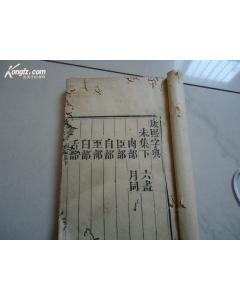 Kongfz.com
康熙字典
未集下 六畫
肉部 月同
臣部
自部
至部
臼部
舌部